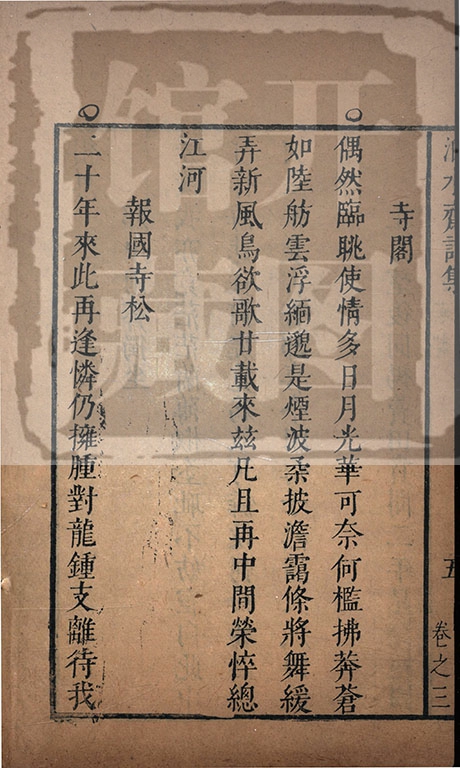 水齋詩集
五
卷之三
寺閣
偶然臨眺使情多日月光華可奈何檻拂莽蒼
如陸舫雲浮緬邈是煙波柔披澹靄條將舞緩
弄新風鳥欲歌廿載來玆凡且再中間榮悴總
江河
報國寺松
二十年來此再逢憐仍擁腫對龍鍾支離待我
开图
馆藏